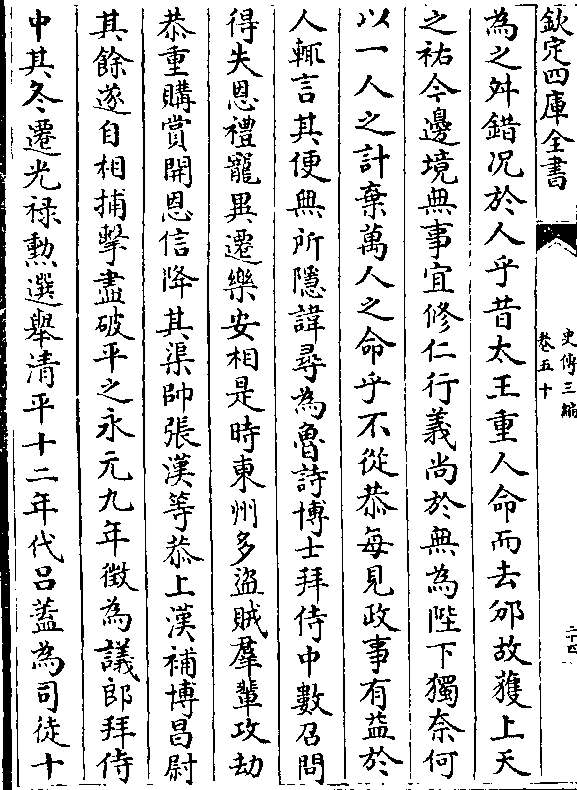 欽定四庫全書
史傳三編
卷五十
二十四
為之舛錯况於人乎昔太王重人命而去邠故獲上天
之祐今邊境無事宜修仁行義尚於無為陛下獨奈何
以一人之計棄萬人之命乎不從恭每見政事有益於
人輒言其便無所隱諱尋為魯詩博士拜侍中數召問
得失恩禮寵異遷樂安相是時東州多盜賊羣輩攻劫
恭重購賞開恩信降其渠帥張漢等恭上漢補博昌尉
其餘遂自相捕擊盡破平之永元九年徵為議郎拜侍
中其冬遷光禄勲選舉清平十二年代吕蓋為司徒十